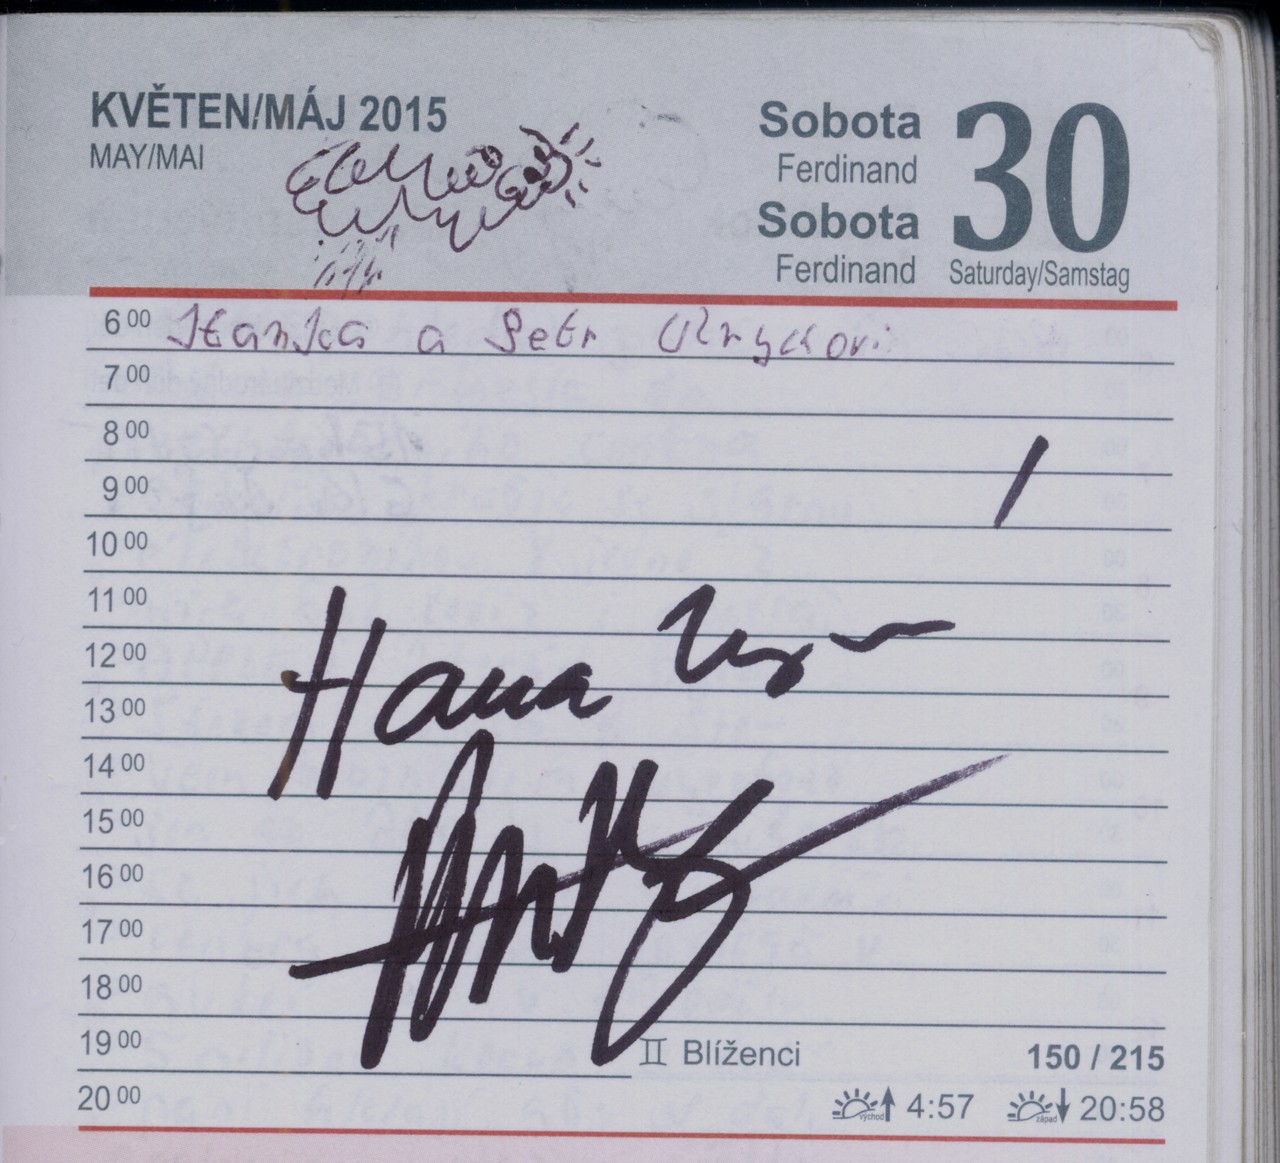 KVĚTEN/MÁJ 2015
MAY/MAI
Sobota
Ferdinand
Sobota
Ferdinand
30
Saturday/Samstag
6 00 Hanka a Petr Ulrychovi
7 00
8 00
9 00
10 00
11 00
12 00
Hana
13 00
14 00
15 00
16 00
17 00
18 00
19 00
♊ Blíženci 150 / 215
20 00
východ 4:57 západ 20:58